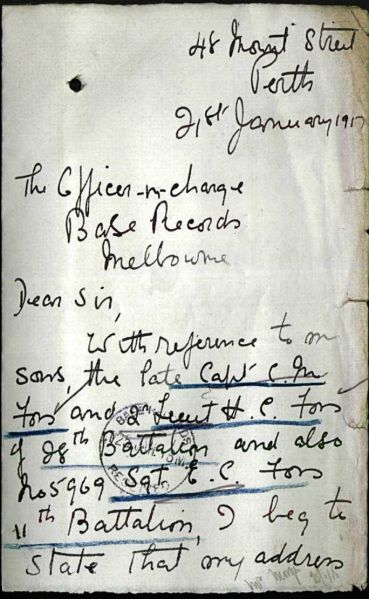 48 Mount Street
Perth
21st January 1917
The Officer-in-charge
Base Records
Melbourne
Dear Sir,
With reference to m
sons, the late Capt C. M.
Foss and 2 Lieut H. C. Foss
of 28th Battalion and also
No 5969 Sgt E. C. Foss
11th Battalion, I beg to
state that my address
BASE RECORDS